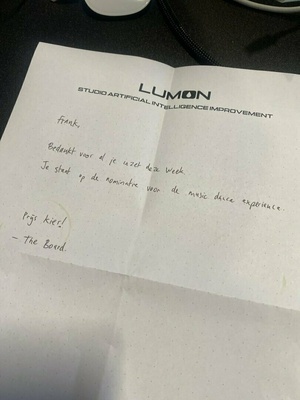 LUMON
STUDIO ARTIFICIAL INTELLIGENCE IMPROVEMENT
Frank,
Bedankt voor al je inzet deze week.
Je staat op de nominatie voor de music dance experience.
Prijs Kier!
- The Board.